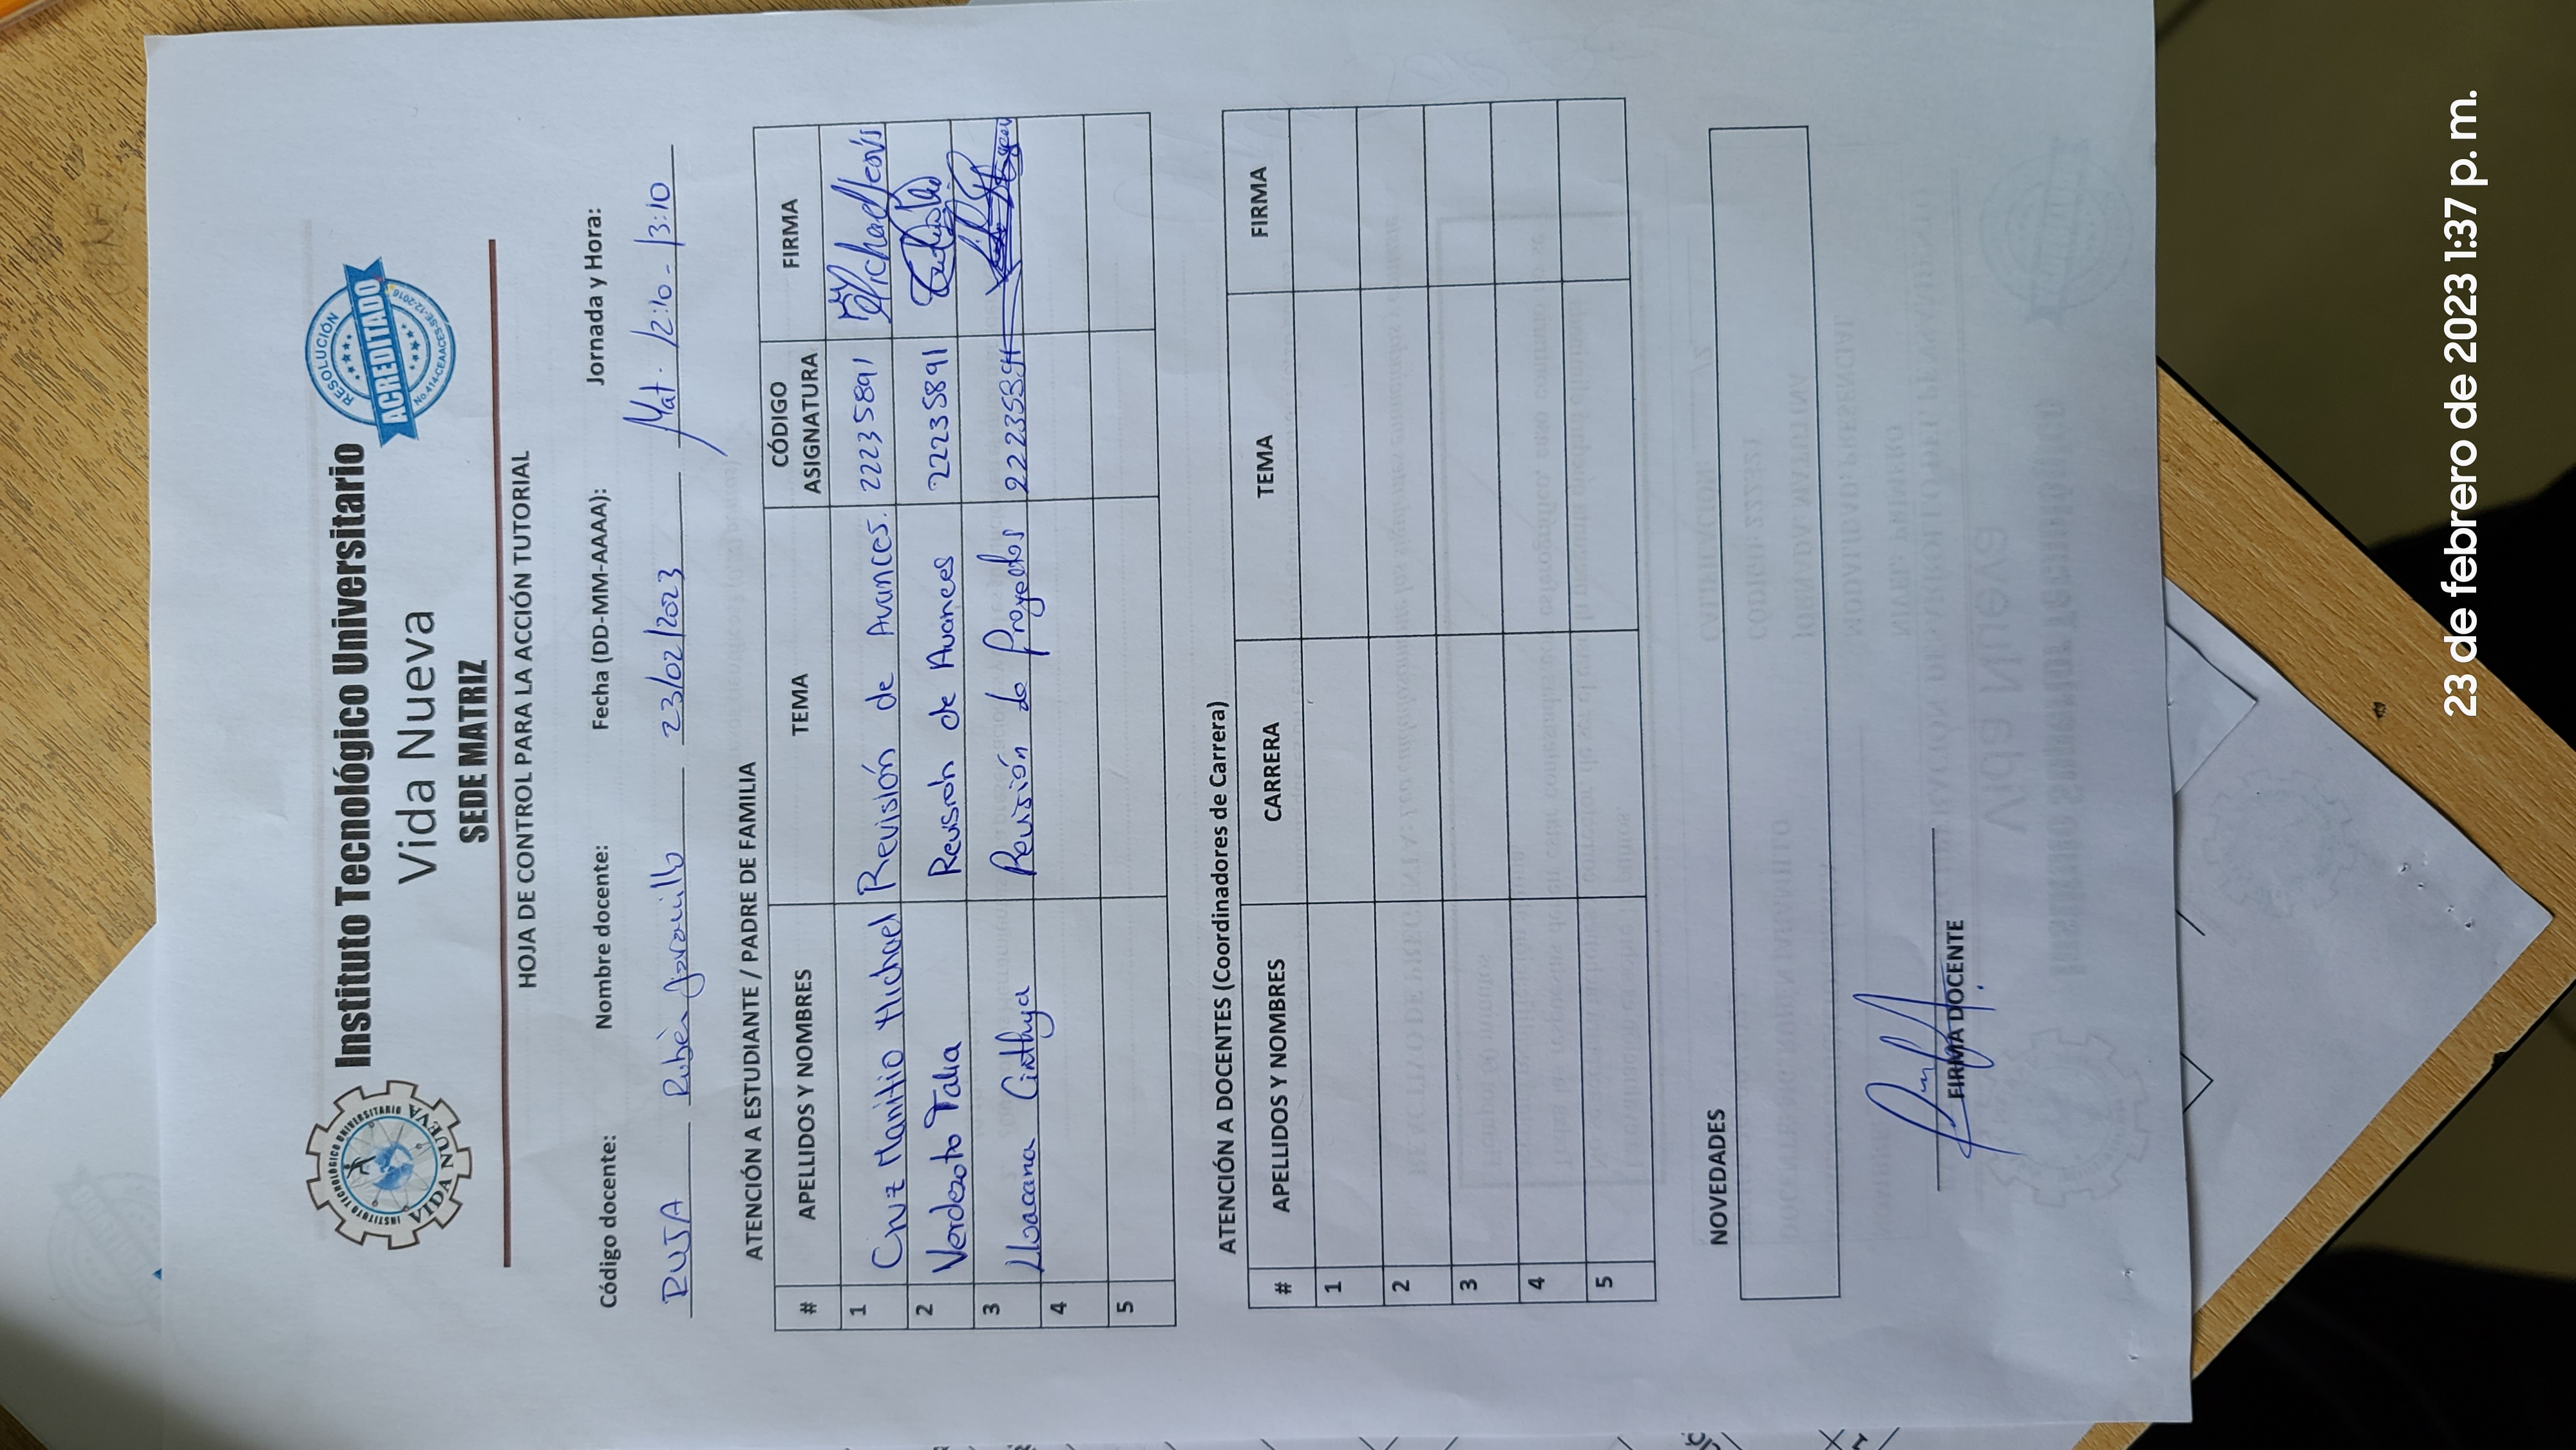 INSTITUTO TECNOLÓGICO UNIVERSITARIO
VIDA NUEVA
Instituto Tecnológico Universitario
Vida Nueva
SEDE MATRIZ
RESOLUCIÓN
ACREDITADO
No.414-CEAACES-SE-12-2016
HOJA DE CONTROL PARA LA ACCIÓN TUTORIAL
Código docente: Nombre docente: Fecha (DD-MM-AAAA): Jornada y Hora:
RUJA Rubén Jaramillo 23/02/2023 Mat. 12:10 - 13:10
ATENCIÓN A ESTUDIANTE / PADRE DE FAMILIA
# APELLIDOS Y NOMBRES TEMA CÓDIGO ASIGNATURA FIRMA
1 Cruz Manitio Michael Revisión de Avances. 22235891 Michael Jesús
2 Verdezoto Talia Revisión de Avances 22235891
3 Lloacana Cinthya Revisión de Proyectos 22235891
4
5
ATENCIÓN A DOCENTES (Coordinadores de Carrera)
# APELLIDOS Y NOMBRES CARRERA TEMA FIRMA
1
2
3
4
5
NOVEDADES
FIRMA DOCENTE
23 de febrero de 2023 1:37 p. m.